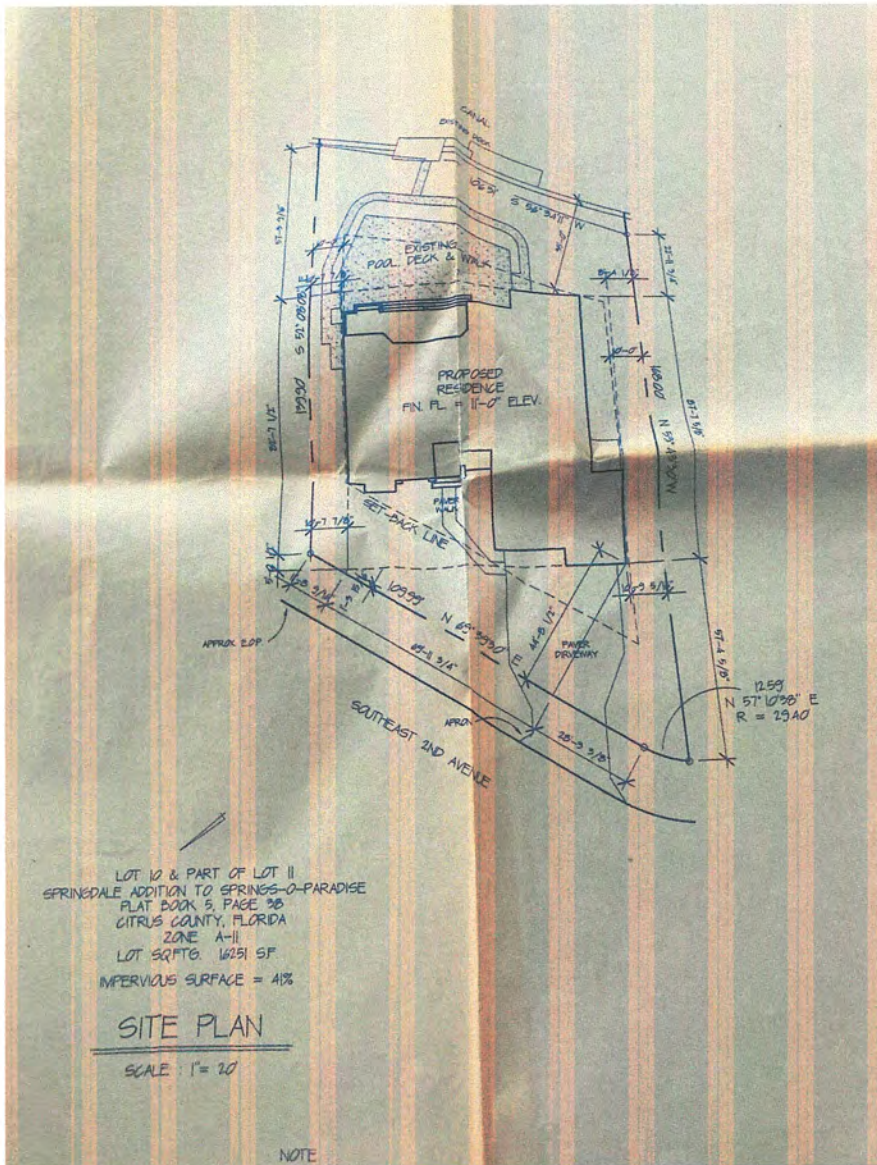 CANAL
EXISTING DOCK
106.51
S 56° 34'11" W
57'-9 7/8"
EXISTING
POOL DECK & WALK
22'-11 3/4"
8'-4 1/2"
10'-0"
139.90 S 52° 08'08" E
PROPOSED
RESIDENCE
FIN. FL. = 11'-0" ELEV.
57'-7 5/8"
PAVER
SET-BACK LINE
10'-7 7/8"
109.99'
N 65° 39'30" E
44'-8 1/2"
PAVER
DRIVEWAY
APPROX. E.O.P.
69'-11 3/4"
57'-4 5/8"
12.59'
N 57° 10'38" E
R = 29.40'
APRON
28'-3 3/8"
SOUTHEAST 2ND AVENUE
LOT 10 & PART OF LOT 11
SPRINGDALE ADDITION TO SPRINGS-O-PARADISE
PLAT BOOK 5, PAGE 38
CITRUS COUNTY, FLORIDA
ZONE A-11
LOT SQ.FTG. 16251 SF
IMPERVIOUS SURFACE = 41%
SITE PLAN
SCALE : 1" = 20'
NOTE